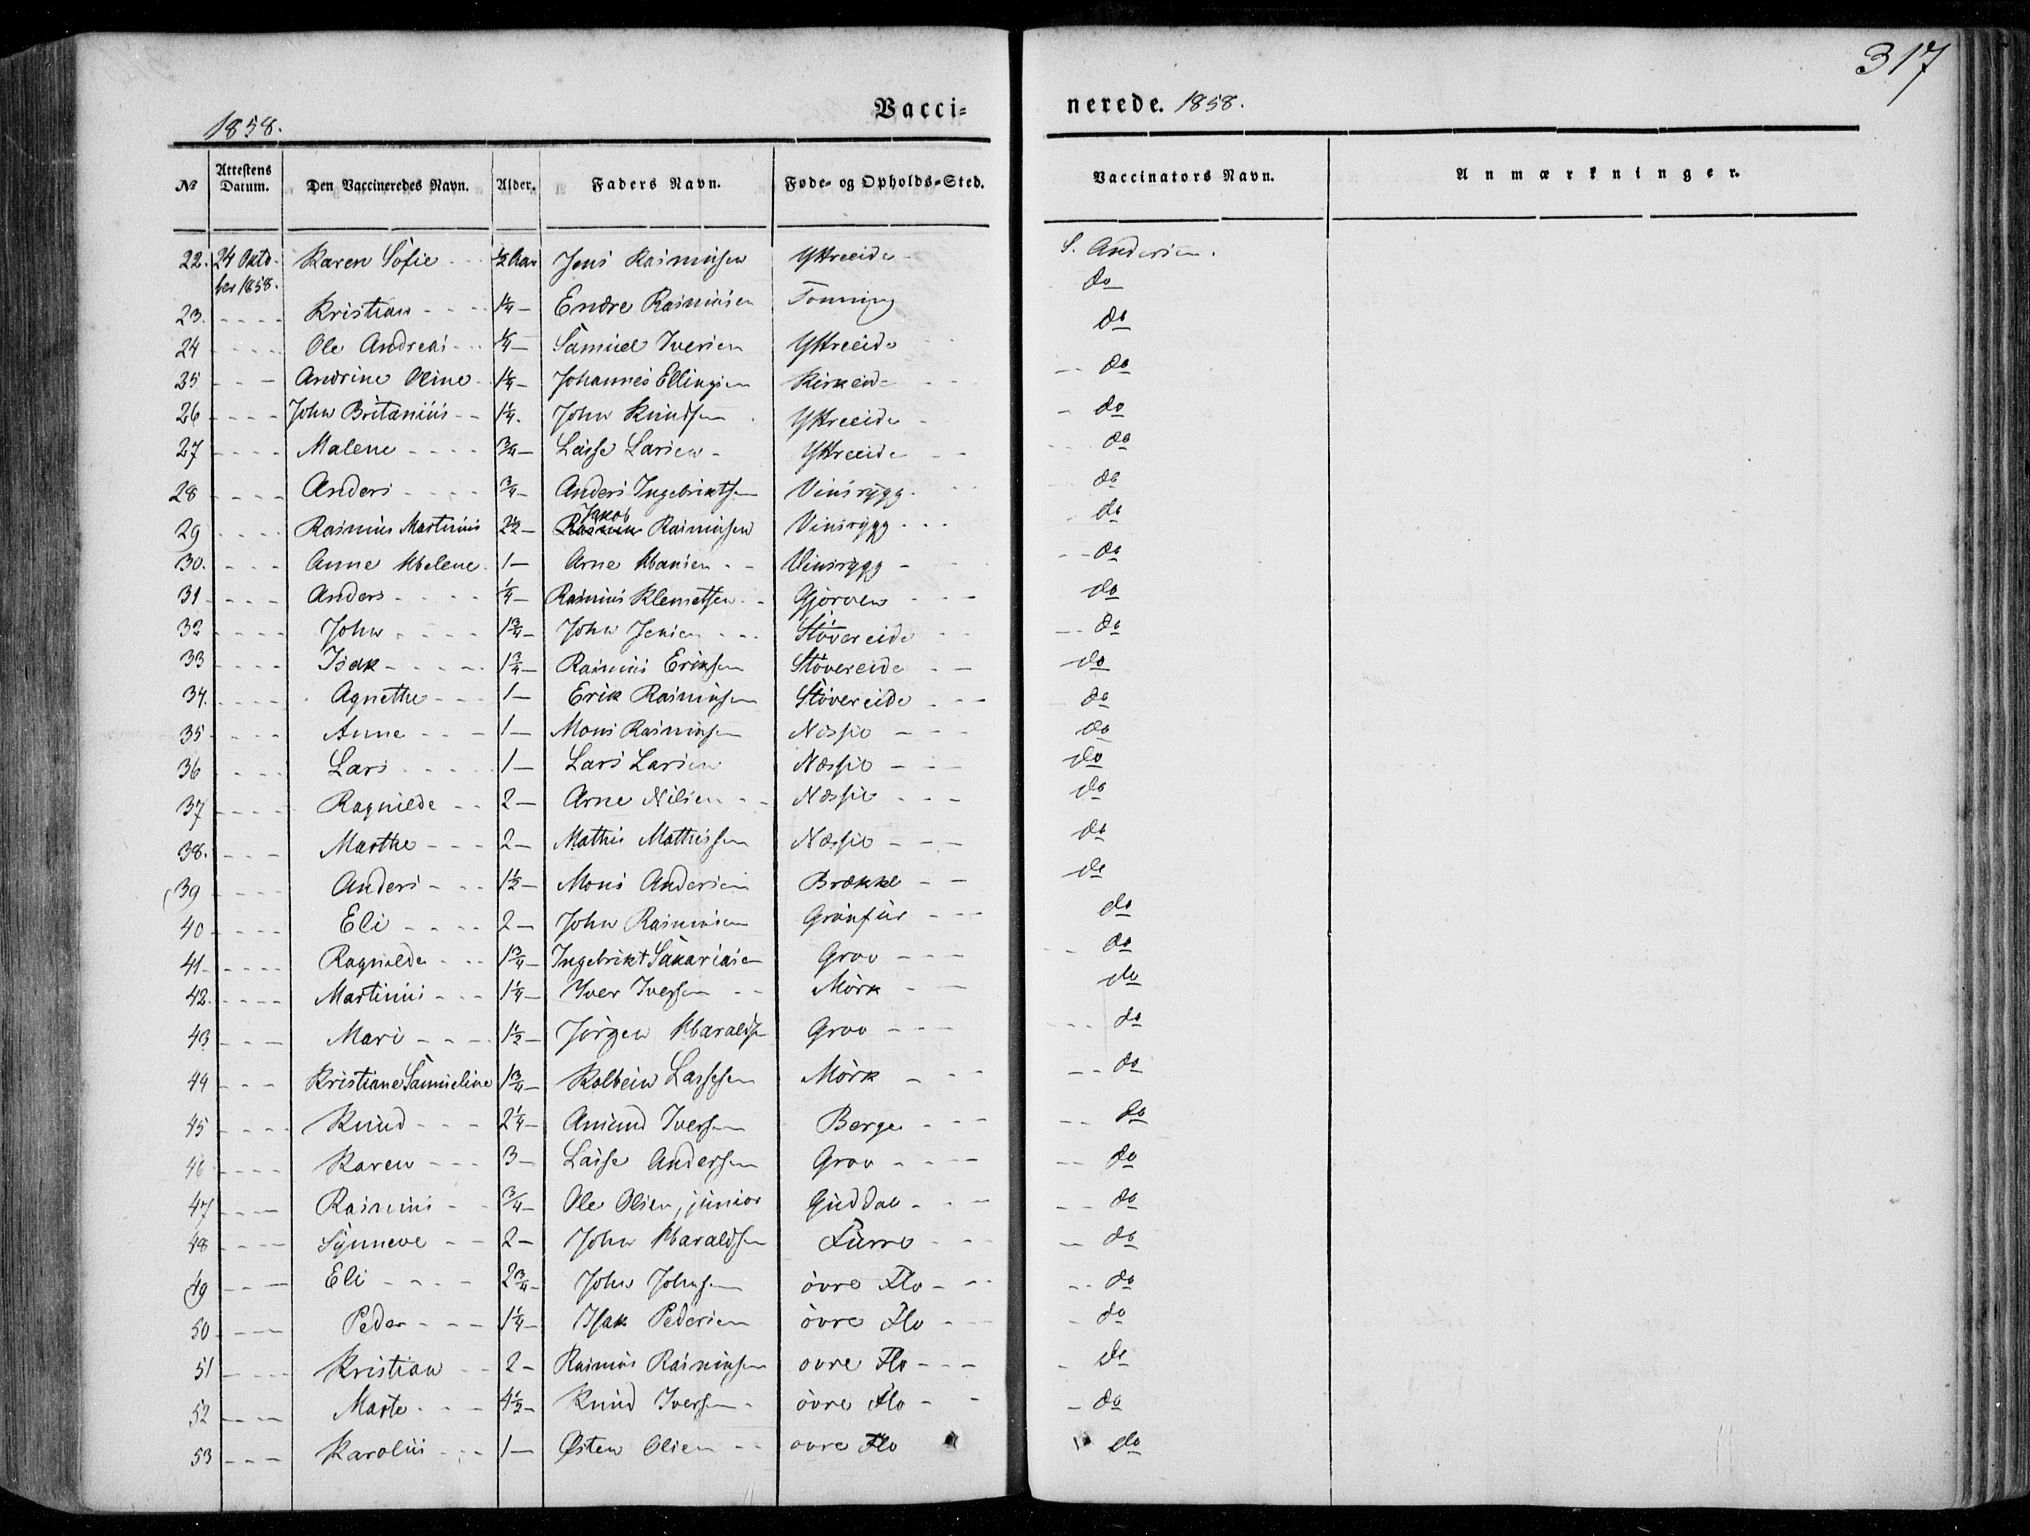 317
1858.
Vacci-
nerede. 1858.
No Attestens Datum. Den Vaccineredes Navn. Alder. Faders Navn. Føde- og Opholds-Sted. Vaccinators Navn. Anmærkninger.
22. 24 Okto- Karen Sofie ½ Aar Jens Rasmusen Yttreeide S. Andersen.
ber 1858. do
23. Kristian 1¼ Endre Rasmusen Tonning do
24 Ole Andreas ¼ Samuel Iversen Yttreeide do
25 Andrine Oline 1¼ Johannes Ellingsen Kirkeide do
26 John Britanius 1¼ John Knudsen Yttreeide do
27 Malene ¾ Lasse Larsen Yttreeide do
28 Anders ¾ Anders Ingebriktsen Vinsrygg do
29 Rasmus Martinus 2½ Jakob Rasmusen Vinsrygg do
30. Anne Helene 1 Arne Hansen Vinsrygg do
31 Anders ¼ Rasmus Klemetsen Gjørven do
32 John 1¾ John Jensen Støvereide do
33 Isak 1¾ Rasmus Eriksen Støvereide do
34. Agnethe 1 Erik Rasmusen Støvereide do
35 Anne 1 Mons Rasmusen Nessjø do
36 Lars 1 Lars Larsen Næssjø do
37 Ragnilde 2 Arne Nilsen Næssjø do
38. Marthe 2 Mathis Mathissen Næssjø do
39 Anders 1½ Mons Andersen Brække do
40 Eli 2 John Rasmusen Grønfur do
41 Ragnilde 1¾ Ingebrikt Sakariasen Grov do
42. Martinus 1¼ Iver Iversen Mørk do
43 Mari 1½ Jørgen Haraldsen Grov do
44 Kristiane Samueline 1¾ Kolbein Lassesen Mørk do
45 Knud 2¼ Amund Iversen Berge do
46 Karen 3 Lasse Andersen Grov do
47 Rasmus ¾ Ole Olsen, junior Guddal do
48 Synneve 2 John Haraldsen Furre do
49 Eli 2¾ John Johnsen øvre Flo do
50 Peder 1¼ Isak Pedersen øvre Flo do
51 Kristian 2 Rasmus Rasmusen øvre Flo do
52 Marte 4½ Knud Iversen øvre Flo do
53 Karolus 1 Østen Olsen øvre Flo do